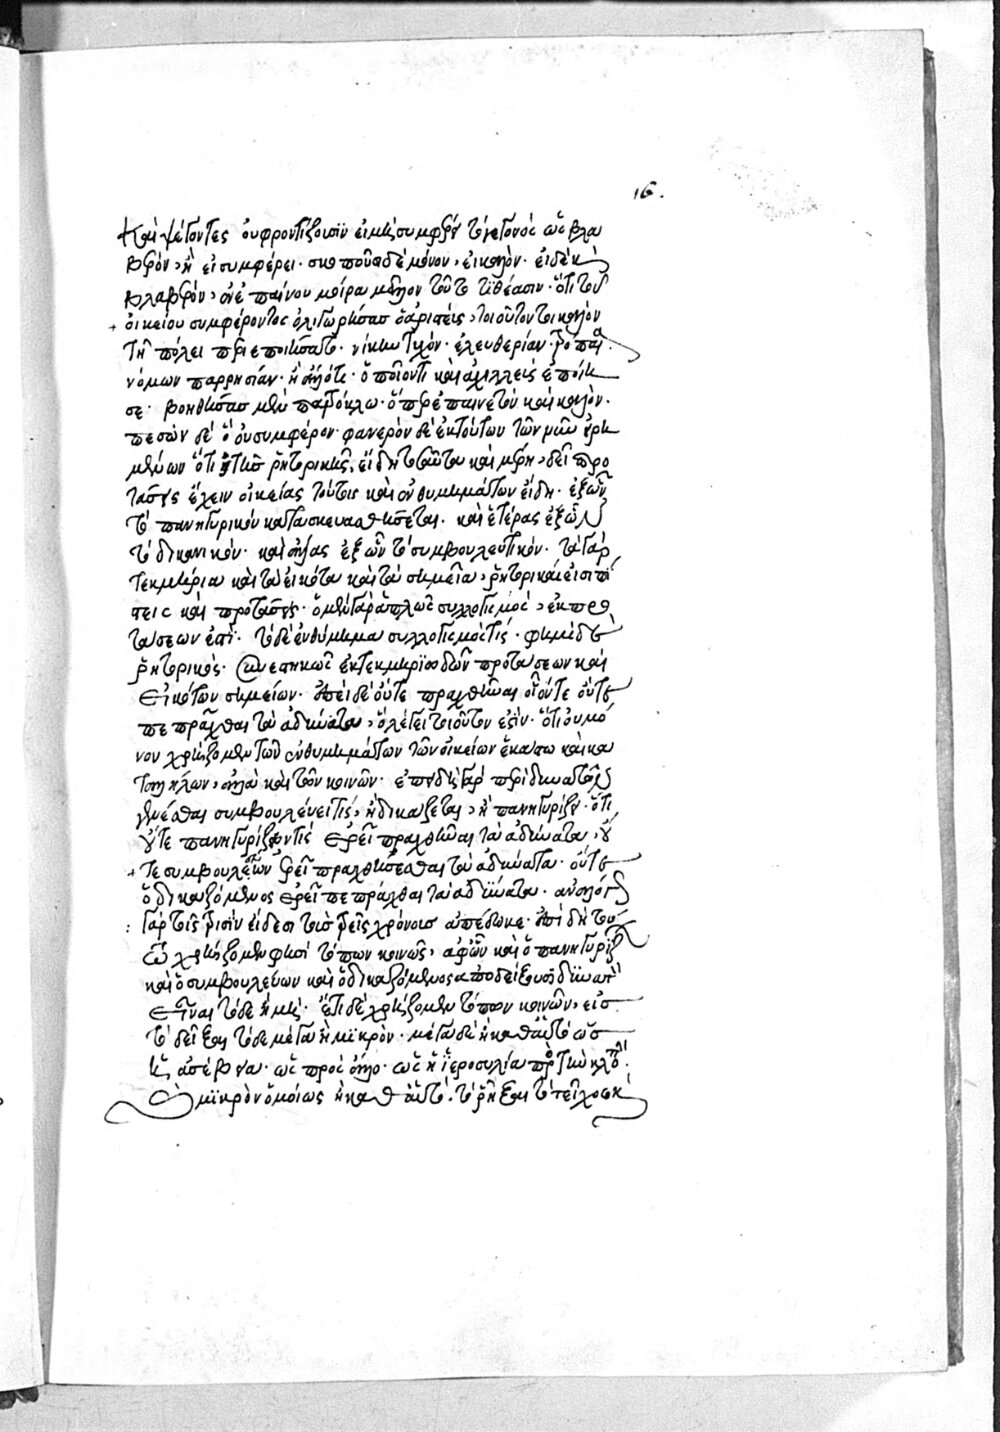 16.
καὶ ψέγοντες οὐ φροντίζουσιν εἰ μὴ συμφέρον τὸ γεγονὸς ὡς βλα
βερὸν, ἢ εἰ συμφέρει· σκοποῦσι δὲ μόνον, εἰ καλὸν· εἰ δὲ καὶ
βλαβερὸν, ἐν ἐπαίνου μοίρα μᾶλλον τοῦτο τιθέασιν· ὅτι τοῦ
οἰκείου συμφέροντος ὀλιγωρήσας ὁ ἀριστεὺς, τοιοῦτόν τι καλὸν
τῇ πόλει περιεποιήσατο· νίκην τυχὸν· ἐλευθερίαν·
νόμων παρρησίαν· ἢ ἄλλό τι· ὁποῖόν τι καὶ ἀχιλλεὺς ἐποίη
σε· βοηθήσας μὲν πατρόκλω· ὅπερ ἐπαινετὸν καὶ καλὸν·
πεσὼν δὲ ὃ οὐ συμφέρον· φανερὸν δὲ ἐκ τούτων τῶν μοι εἰρη
μένων ὅτι τῆς ῥητορικῆς, εἴδη ταῦτα καὶ μέρη, δεῖ προ
τάσεις ἔχειν οἰκείας τούτοις καὶ ἐνθυμημάτων εἴδη· ἐξ ὧν
τὸ πανηγυρικὸν κατασκευασθήσεται· καὶ ἑτέρας ἐξ ὧν
τὸ δικανικόν· καὶ ἄλλας ἐξ ὧν τὸ συμβουλευτικόν· τὰ γὰρ
τεκμήρια καὶ τὰ εἰκότα καὶ τὰ σημεῖα, ῥητορικαί εἰσι πί
στεις καὶ προτάσεις· ὁ μὲν γὰρ ἁπλῶς συλλογισμὸς, ἐκ προ
τάσεών ἐστι· τὸ δὲ ἐνθύμημα συλλογισμός τίς· φημὶ δὲ
ῥητορικός· συνεστηκὼς ἐκ τεκμηριωδῶν προτάσεων καὶ
εἰκότων σημείων· ἐπεὶ δὲ οὔτε πραχθῆναι οἷόν τε οὔτε
πεπρᾶχθαι τὰ ἀδύνατα, ὃ λέγει τοιοῦτόν ἐστιν· ὅτι οὐ μό
νον χρήζομεν τῶν ἐνθυμημάτων τῶν οἰκείων ἑκάστω καὶ κα
ταλλήλων, ἀλλὰ καὶ τῶν κοινῶν· ἐπειδὴ γὰρ περὶ δυνατοῦ
γενέσθαι συμβουλεύει τίς, ἢ δικάζεται, ἢ πανηγυρίζει· ὅτι
οὔτε πανηγυρίζων τίς ἐρεῖ πραχθῆναι τὰ ἀδύνατα, οὔ
τε συμβουλεύων ἐρεῖ πραχθήσεσθαι τὰ ἀδύνατα· οὔτε
ὁ δικαζόμενος ἐρεῖ πεπρᾶχθαι τὰ ἀδύνατα·
γὰρ τοῖς τρισὶν εἴδεσι τοὺς τρεῖς χρόνους ἀπέδωκε· ἐπεὶ δὴ
χρήζομεν φησὶ τόπων κοινῶν, ἀφ' ὧν καὶ ὁ πανηγυρίζων
καὶ ὁ συμβουλεύων καὶ ὁ δικαζόμενος ἀποδείξουσι δυνατὸν
εἶναι τόδε ἢ μή· ἔτι δὲ χρήζομεν τόπων κοινῶν, εἰς
τὸ δεῖξαι τόδε μέγα ἢ μικρὸν· μέγα δὲ ἢ καθ' αὑτὸ ὡς
ἡ ἀσέβεια· ὡς πρὸς ἄλλο· ὡς ἡ ἱεροσυλία πρὸς τὴν κλοπήν·
μικρὸν ὁμοίως ἢ καθ' αὑτὸ· τὸ ῥῆξαι τὸ τεῖχος